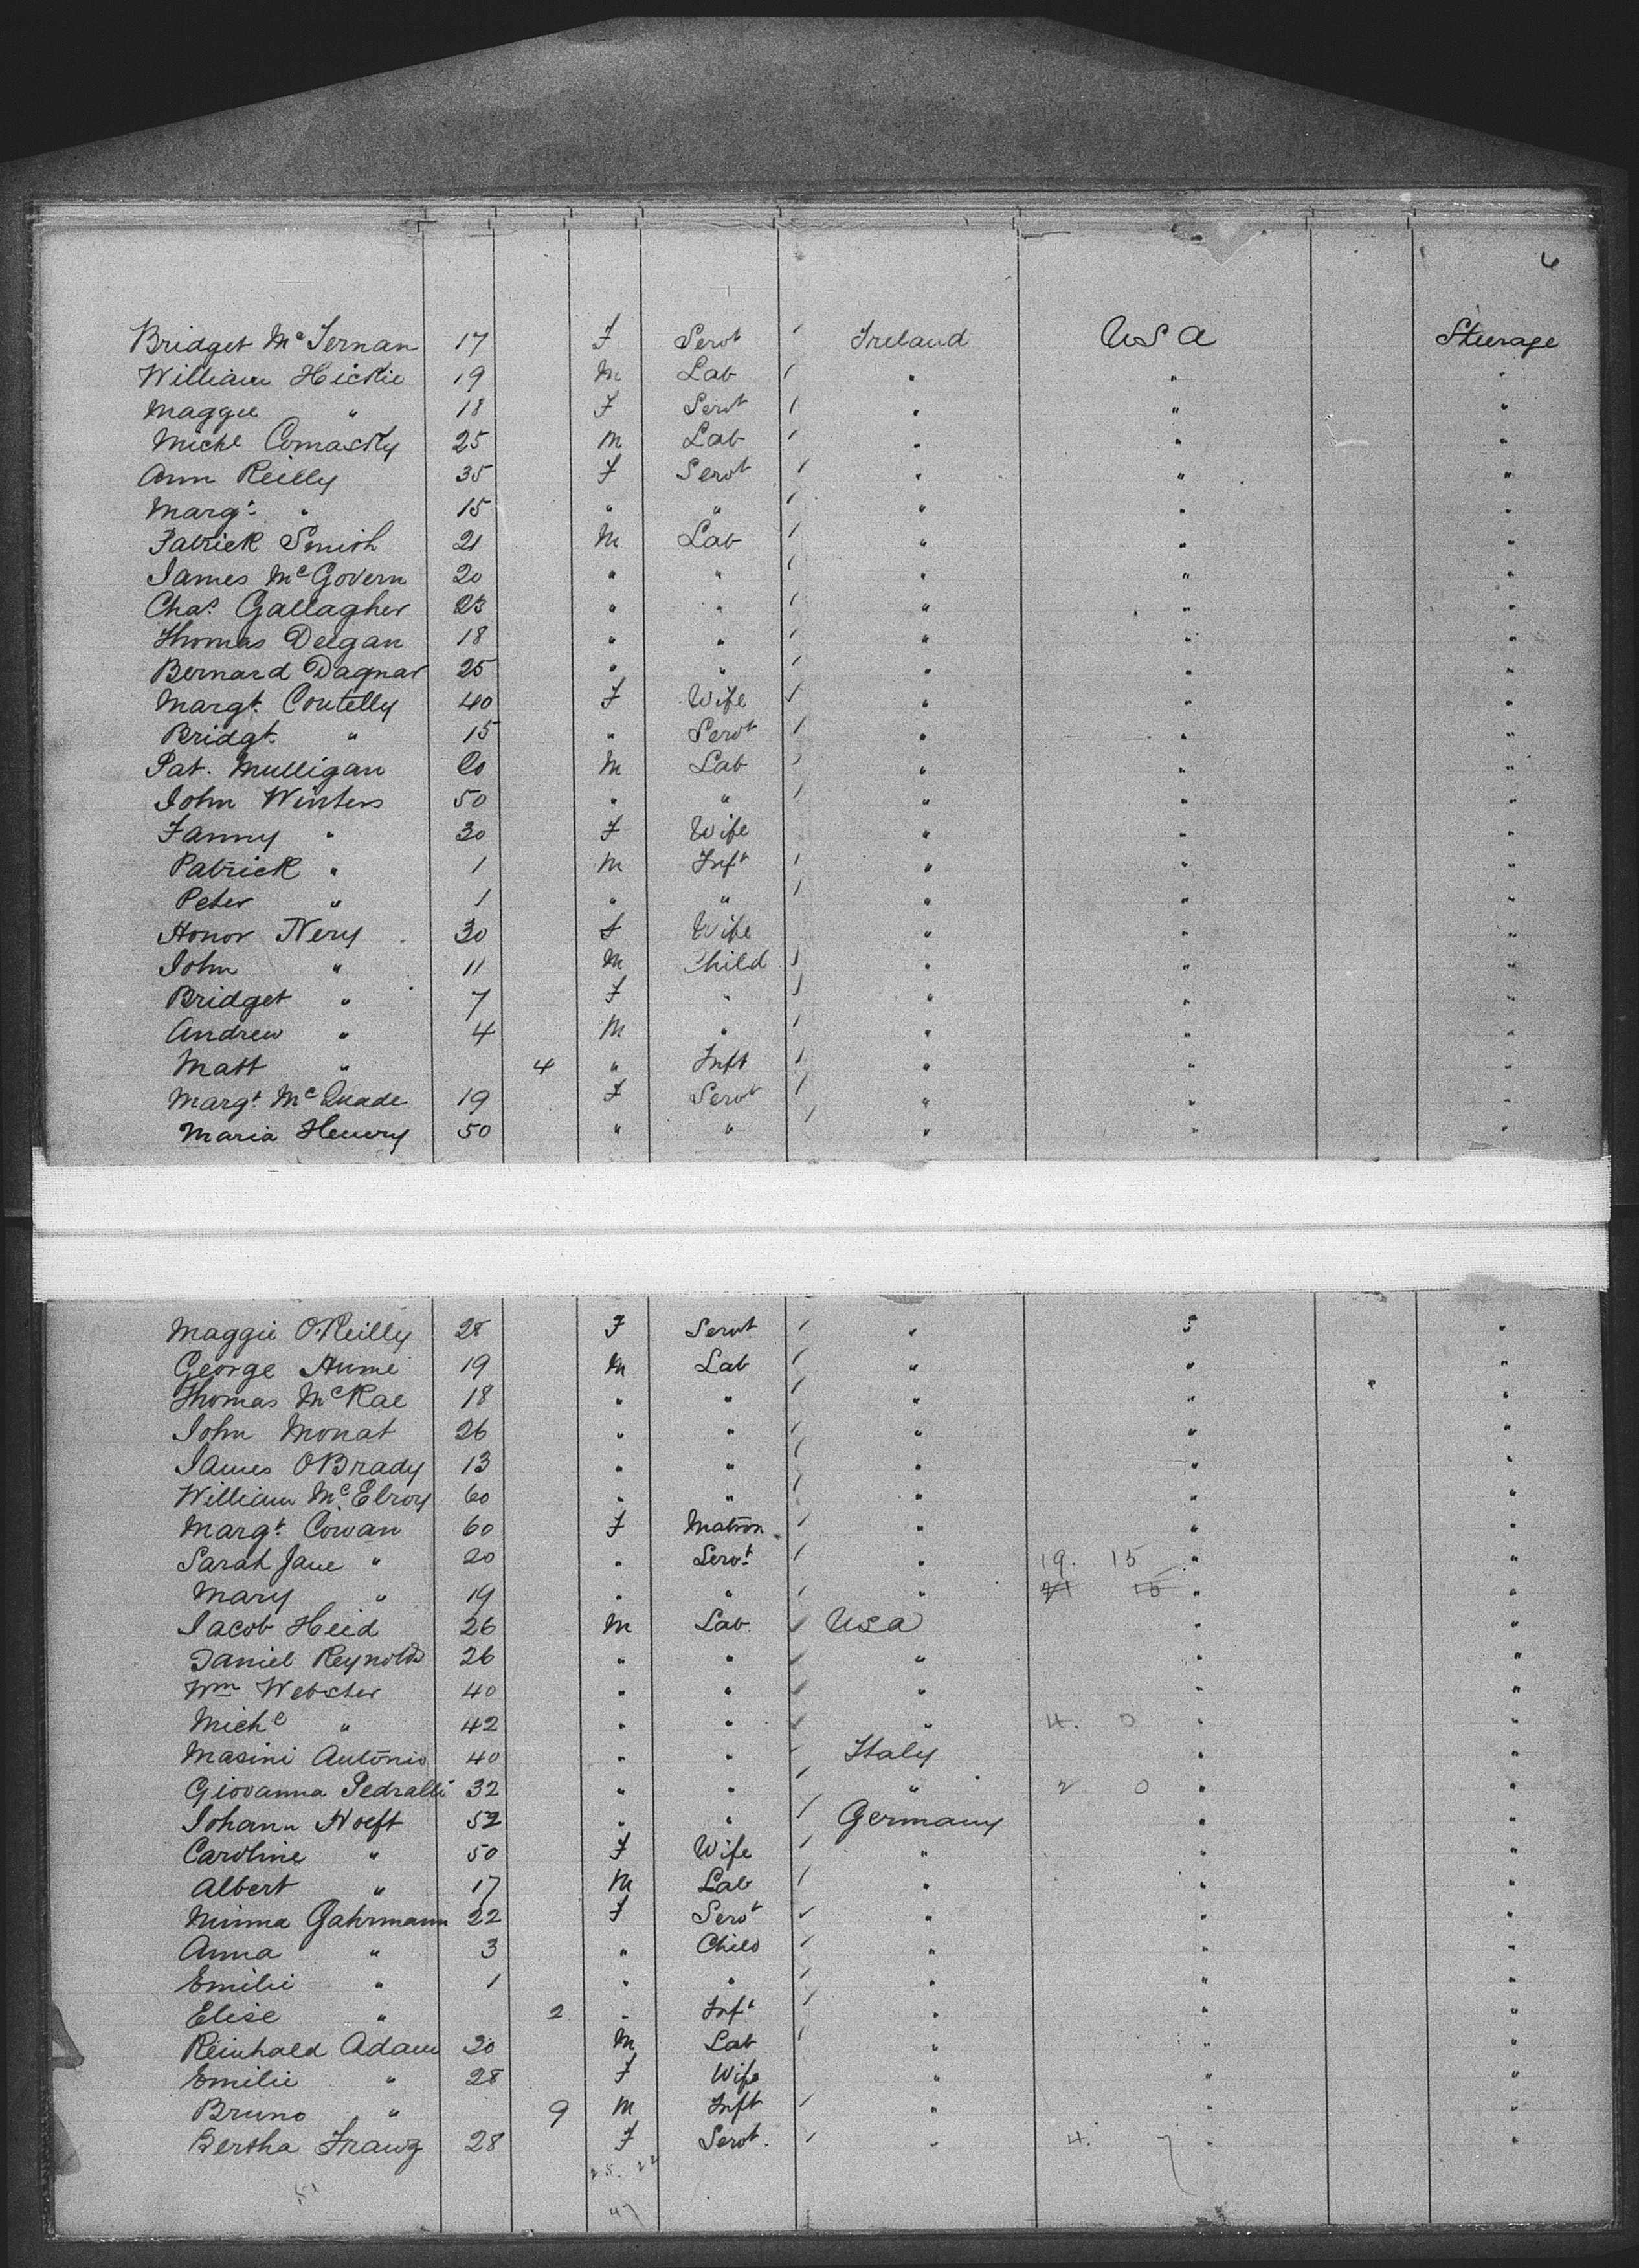 6
Bridget McTernan 17 F Servt / Ireland USA Steerage
William Hickie 19 M Lab / " " "
Maggie " 18 F Servt / " " "
Michl Comasky 25 M Lab / " " "
Ann Reilly 35 F Servt / " " "
Margt " 15 " " / " " "
Patrick Smith 21 M Lab / " " "
James McGovern 20 " " / " " "
Chas. Gallagher 23 " " / " " "
Thomas Deegan 18 " " / " " "
Bernard Dagnar 25 " " / " " "
Margt. Coutelly 40 F Wife / " " "
Bridgt. " 15 " Servt / " " "
Pat. Mulligan 20 M Lab / " " "
John Winters 50 " " / " " "
Fanny " 30 F Wife " " "
Patrick " 1 M Inft / " " "
Peter " 1 " " / " " "
Honor Nery 30 f Wife " " "
John " 11 M Child / " " "
Bridget " 7 F " / " " "
Andrew " 4 M " / " " "
Matt " 4 " Inft / " " "
Margt. McQuade 19 F Servt / " " "
Maria Henry 50 " " / " " "
Maggie O'Reilly 28 F Servt / " " "
George Hume 19 M Lab / " " "
Thomas McRae 18 " " / " " "
John Monat 26 " " / " " "
James OBrady 13 " " / " " "
William McElroy 60 " " / " " "
Margt. Cowan 60 F Matron / " " "
Sarah Jane " 20 " Servt / " 19. 15 " "
Mary " 19 " " / " " "
Jacob Heid 26 M Lab / USA " "
Daniel Reynolds 26 " " / " " "
Wm Webster 40 " " / " " "
Michl " 42 " " / " 4. 0 " "
Masini Antonio 40 " " / Italy " "
Giovanna Pedralli 32 " " / " 2 0 " "
Johann Noeft 52 " " / Germany " "
Caroline " 50 F Wife / " " "
Albert " 17 M Lab / " " "
Minna Gahrmann 22 F Servt / " " "
Anna " 3 " Child / " " "
Emilie " 1 " " / " " "
Elise " 2 " Inft / " " "
Reinhald Adam 30 M Lab / " " "
Emilie " 28 F Wife " " "
Bruno " 9 M Inft / " " "
Bertha 28 F Servt. / " 4. 7 " "
25. 22
47